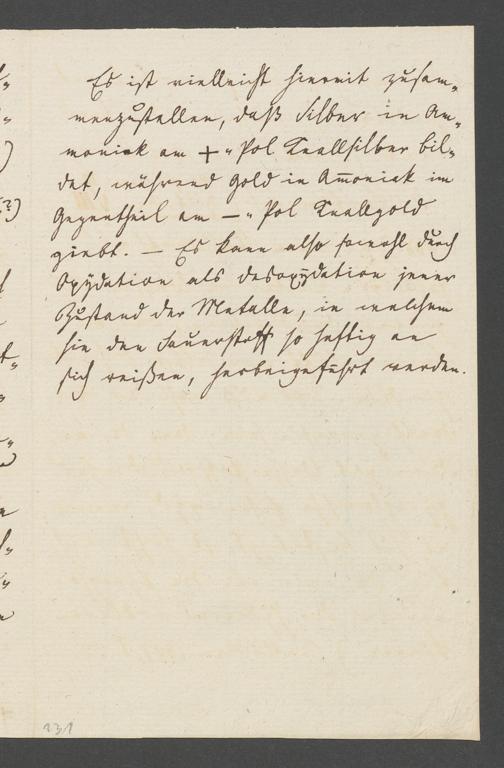 Es ist vielleicht hiermit zusam„
menzustellen, daß Silber in Am„
moniak am + „ Pol Knallsilber bil„
det, während Gold in Amoniak im
Gegentheil am — „ Pol Knallgold
giebt. — Es kann also sowohl durch
Oxÿdation als desoxÿdation jener
Zustand der Metalle, in welchem
sie den Sauerstoff so heftig an
sich reißen, herbeigeführt werden.
231